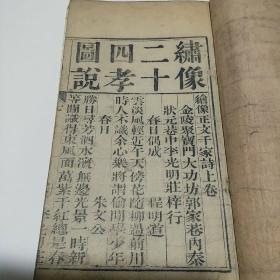 繡像
二十
四孝
圖説
繪像正文千家詩上卷
金陵聚寶門大功坊郭家巷內秦
狀元巷中李光明莊梓行
春日偶成　程明道
雲淡風輕近午天傍花隨柳過前川
時人不識余心樂將謂偷閒學少年
春日　朱文公
勝日尋芳泗水濱無邊光景一時新
等閒識得東風面萬紫千紅總是春